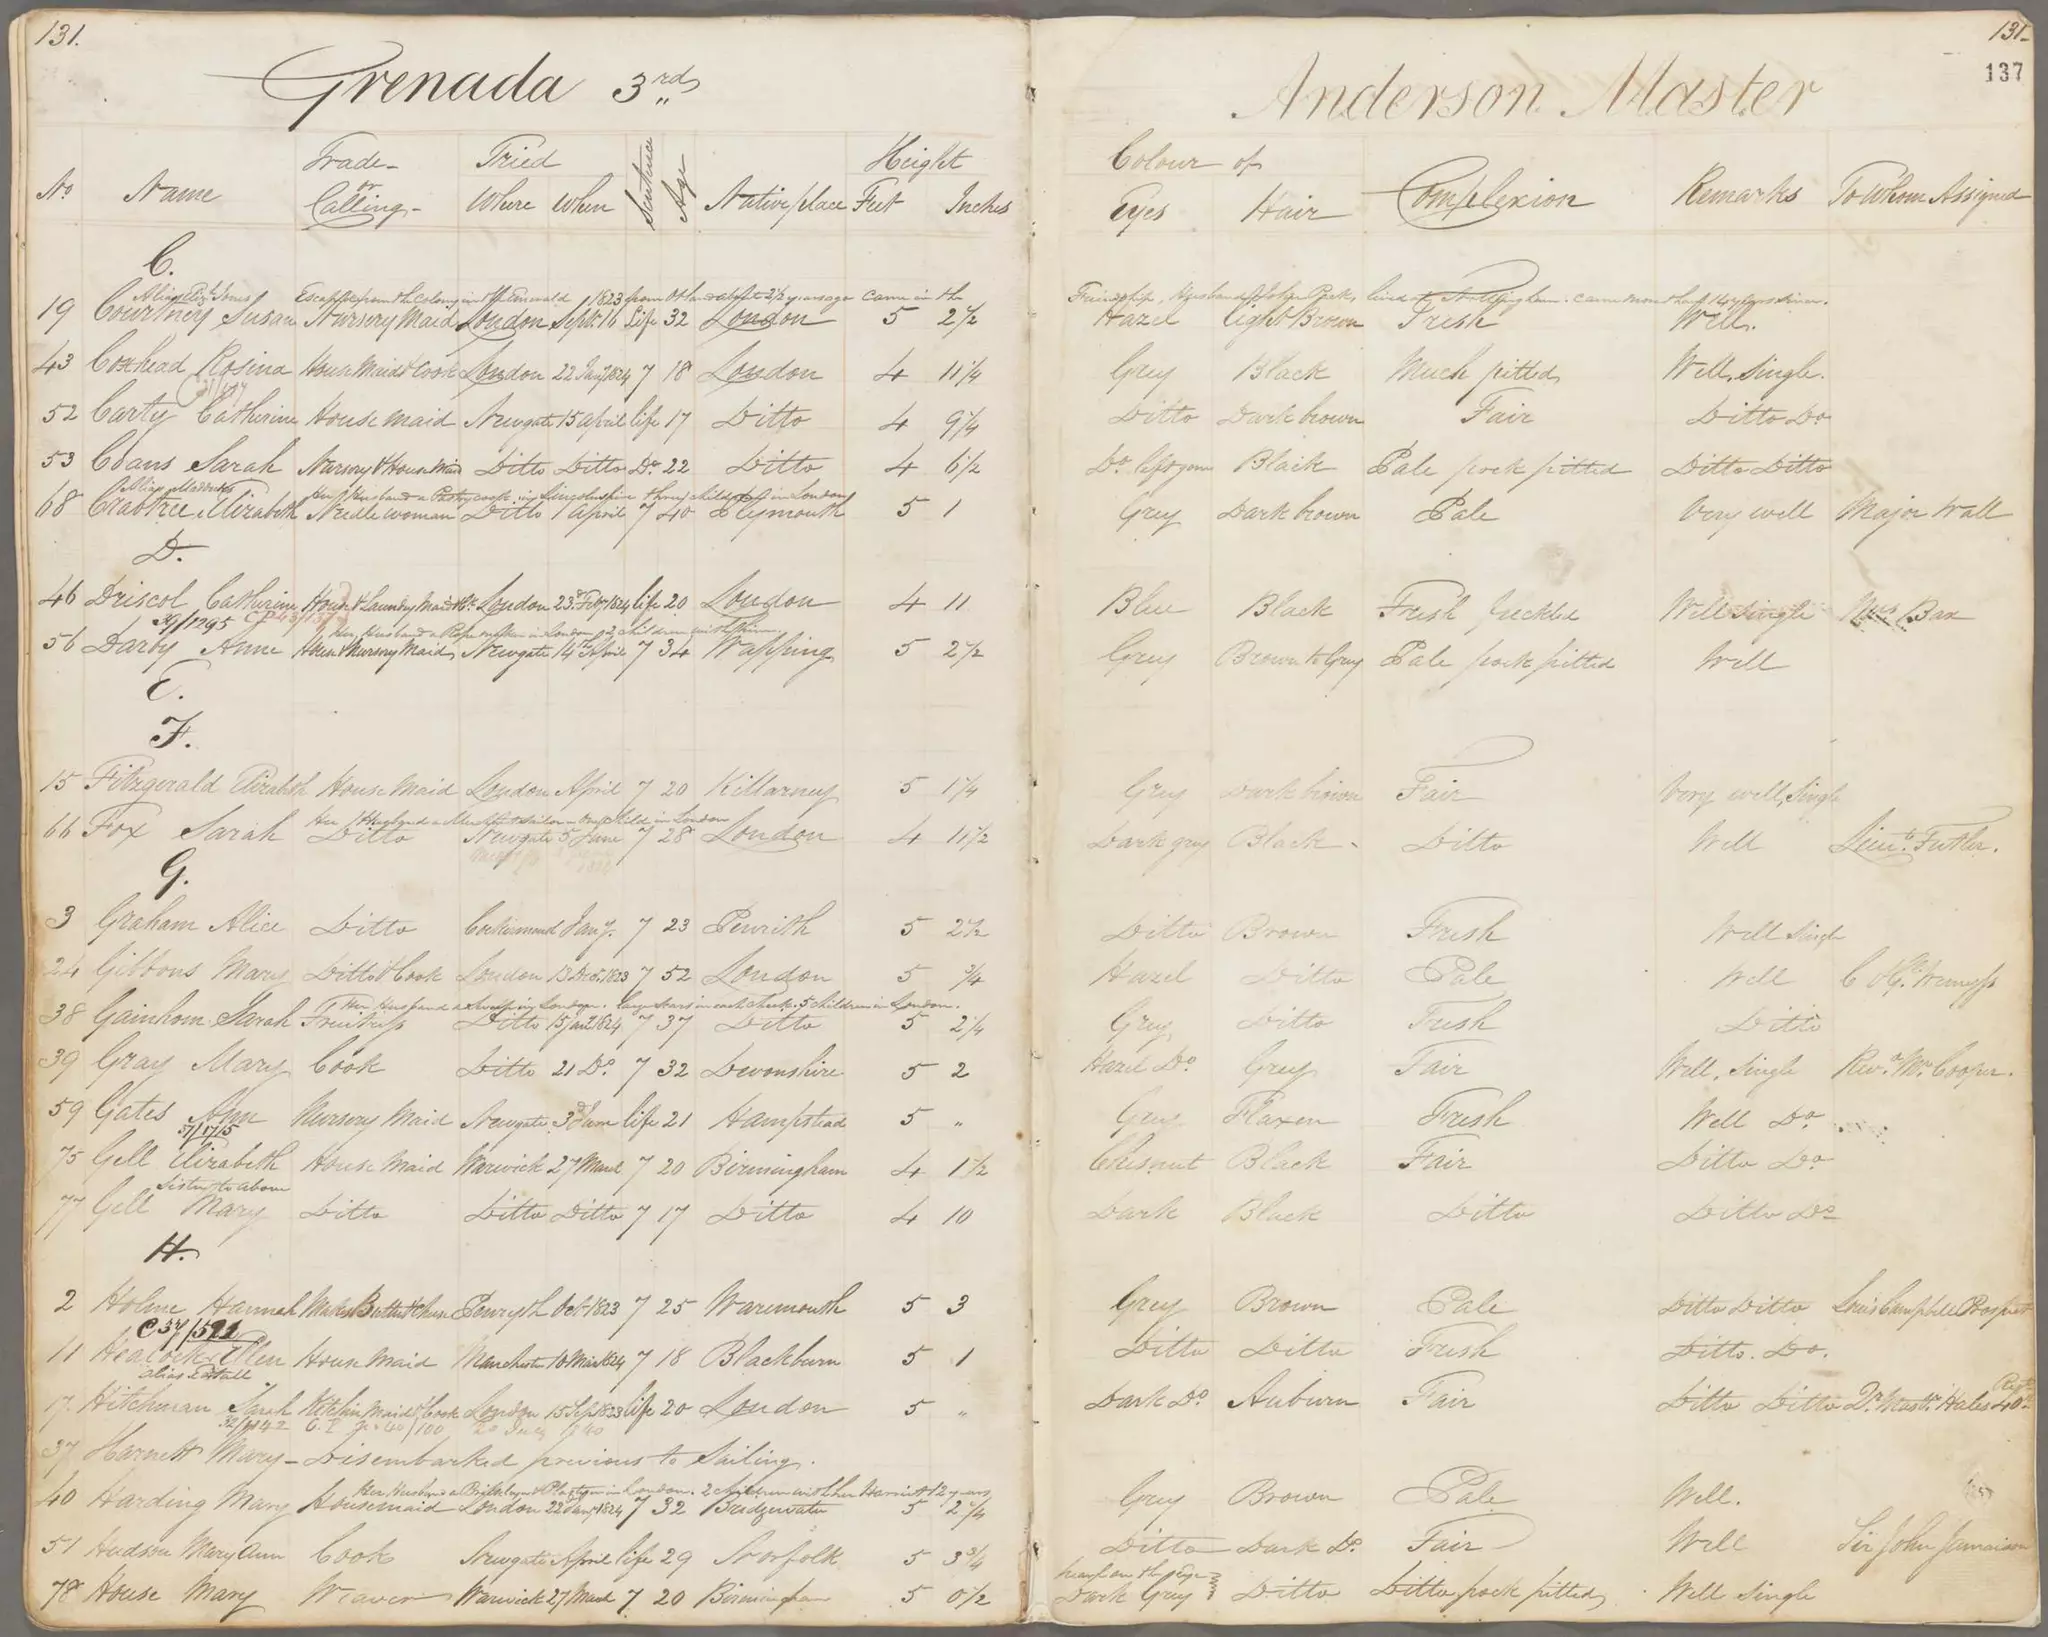 131.
131.
137
Grenada 3rd
Anderson Master
No. Name Trade or Calling Tried Where When Sentence Age Native place Height Feet Inches Colour of Eyes Hair Complexion Remarks To Whom Assigned
C.
Alias Elizth Jones Escaped from the Colony in the Emerald 1823 from about 2½ years ago came in the Friendship, Husband John Park, lived at Nottingham.
19 Courtney Susan Nursery Maid London Sept. 16 Life 32 London 5 2½ Hazel Light Brown Fresh Well.
43 Coxhead Rosina House Maid & Cook London 22 Jany 1824 7 18 London 4 11¼ Grey Black Much pitted Well, Single.
52 Carty Catherine House maid Newgate 15 april life 17 Ditto 4 9¼ Ditto Dark brown Fair Ditto Do
53 Coans Sarah Nursery & House Maid Ditto Ditto Do 22 Ditto 4 6½ Do Black Pale pock pitted Ditto Ditto
Alias Her Husband a Pastry cook in Lincolnshire three children in London
68 Crabtree Elizabeth Needle woman Ditto 1 april 7 40 Plymouth 5 1 Grey Dark brown Pale Very well Major Wall
D.
46 Driscol Catherine House & Laundry Maid London 23d Feby 1824 life 20 London 4 11 Blue Black Fresh freckled Well Single Mrs Bax
39/1295 C P 43/137
Her Husband a Rope maker in London 2 children with him
56 Darby Anne House & Nursery Maid Newgate 14th April 7 34 Wapping 5 2½ Grey Brown to Grey Pale pock pitted Well
E.
F.
15 Fitzgerald Elizabth House Maid London April 7 20 Killarney 5 1¼ Grey Dark brown Fair Very well, Single
Her Husband a Merchant Sailor one Child in London
66 Fox Sarah Ditto Newgate 5 June 7 28 London 4 11½ Dark grey Black Ditto Well Lieut. Futler.
G.
3 Graham Alice Ditto Cockermond Jany. 7 23 Penrith 5 2½ Ditto Brown Fresh Well Single
24 Gibbons Mary Ditto & Cook London 13 Decr. 1823 7 52 London 5 ¾ Hazel Ditto Pale Well Wemyss
Her Husband a in London. large scars in each cheek. 5 children in London.
38 Gainhom Sarah Fruitress Ditto 15 Jany 1824 7 37 Ditto 5 2¼ Grey Ditto Fresh Ditto
39 Gray Mary Cook Ditto 21 Do. 7 32 Devonshire 5 2 Hazel Do Grey Fair Well, Single Revd. Mr. Cooper.
59 Gates Ann Nursery Maid Newgate 3d June life 21 Hampstead 5 " Grey Flaxen Fresh Well Do
31/1715
75 Gell Elizabeth House Maid Warwick 27 March 7 20 Birmingham 4 1½ Chesnut Black Fair Ditto Do
Sister to above
77 Gell Mary Ditto Ditto Ditto 7 17 Ditto 4 10 Dark Black Ditto Ditto Do
H.
2 Holme Hannah Makes Butter & Cheese Penryth Oct 1823 7 25 Waremouth 5 3 Grey Brown Pale Ditto Ditto Louis Campbell Prospect
C 34/591
11 Heacock Ellen House Maid Manchester 10 Mar 1824 7 18 Blackburn 5 1 Ditto Ditto Fresh Ditto. Do.
alias Estall
17. Hitchman Sarah Kitchen Maid & Cook London 15 Sep 1823 life 20 London 5 " Dark Do Auburn Fair Ditto Ditto Dr. Mastr. Hales 40th Regt
32/1142 C. P. No 40/100 20 July 1840
37 Harnett Mary - Disembarked previous to Sailing.
Her Husband a Bricklayer & Plasterer in London. 2 children with her Harriet 12 years
40 Harding Mary Housemaid London 22 Jany 1824 7 32 Bridgewater 5 2¼ Grey Brown Pale Well.
51 Hudson Mary Ann Cook Newgate April life 29 Norfolk 5 3¾ Ditto Dark Do. Fair Well Sir John Jamaison
78 House Mary Weaver Warwick 27 March 7 20 Birmingham 5 0½ Dark Grey Ditto Ditto pock pitted Well Single